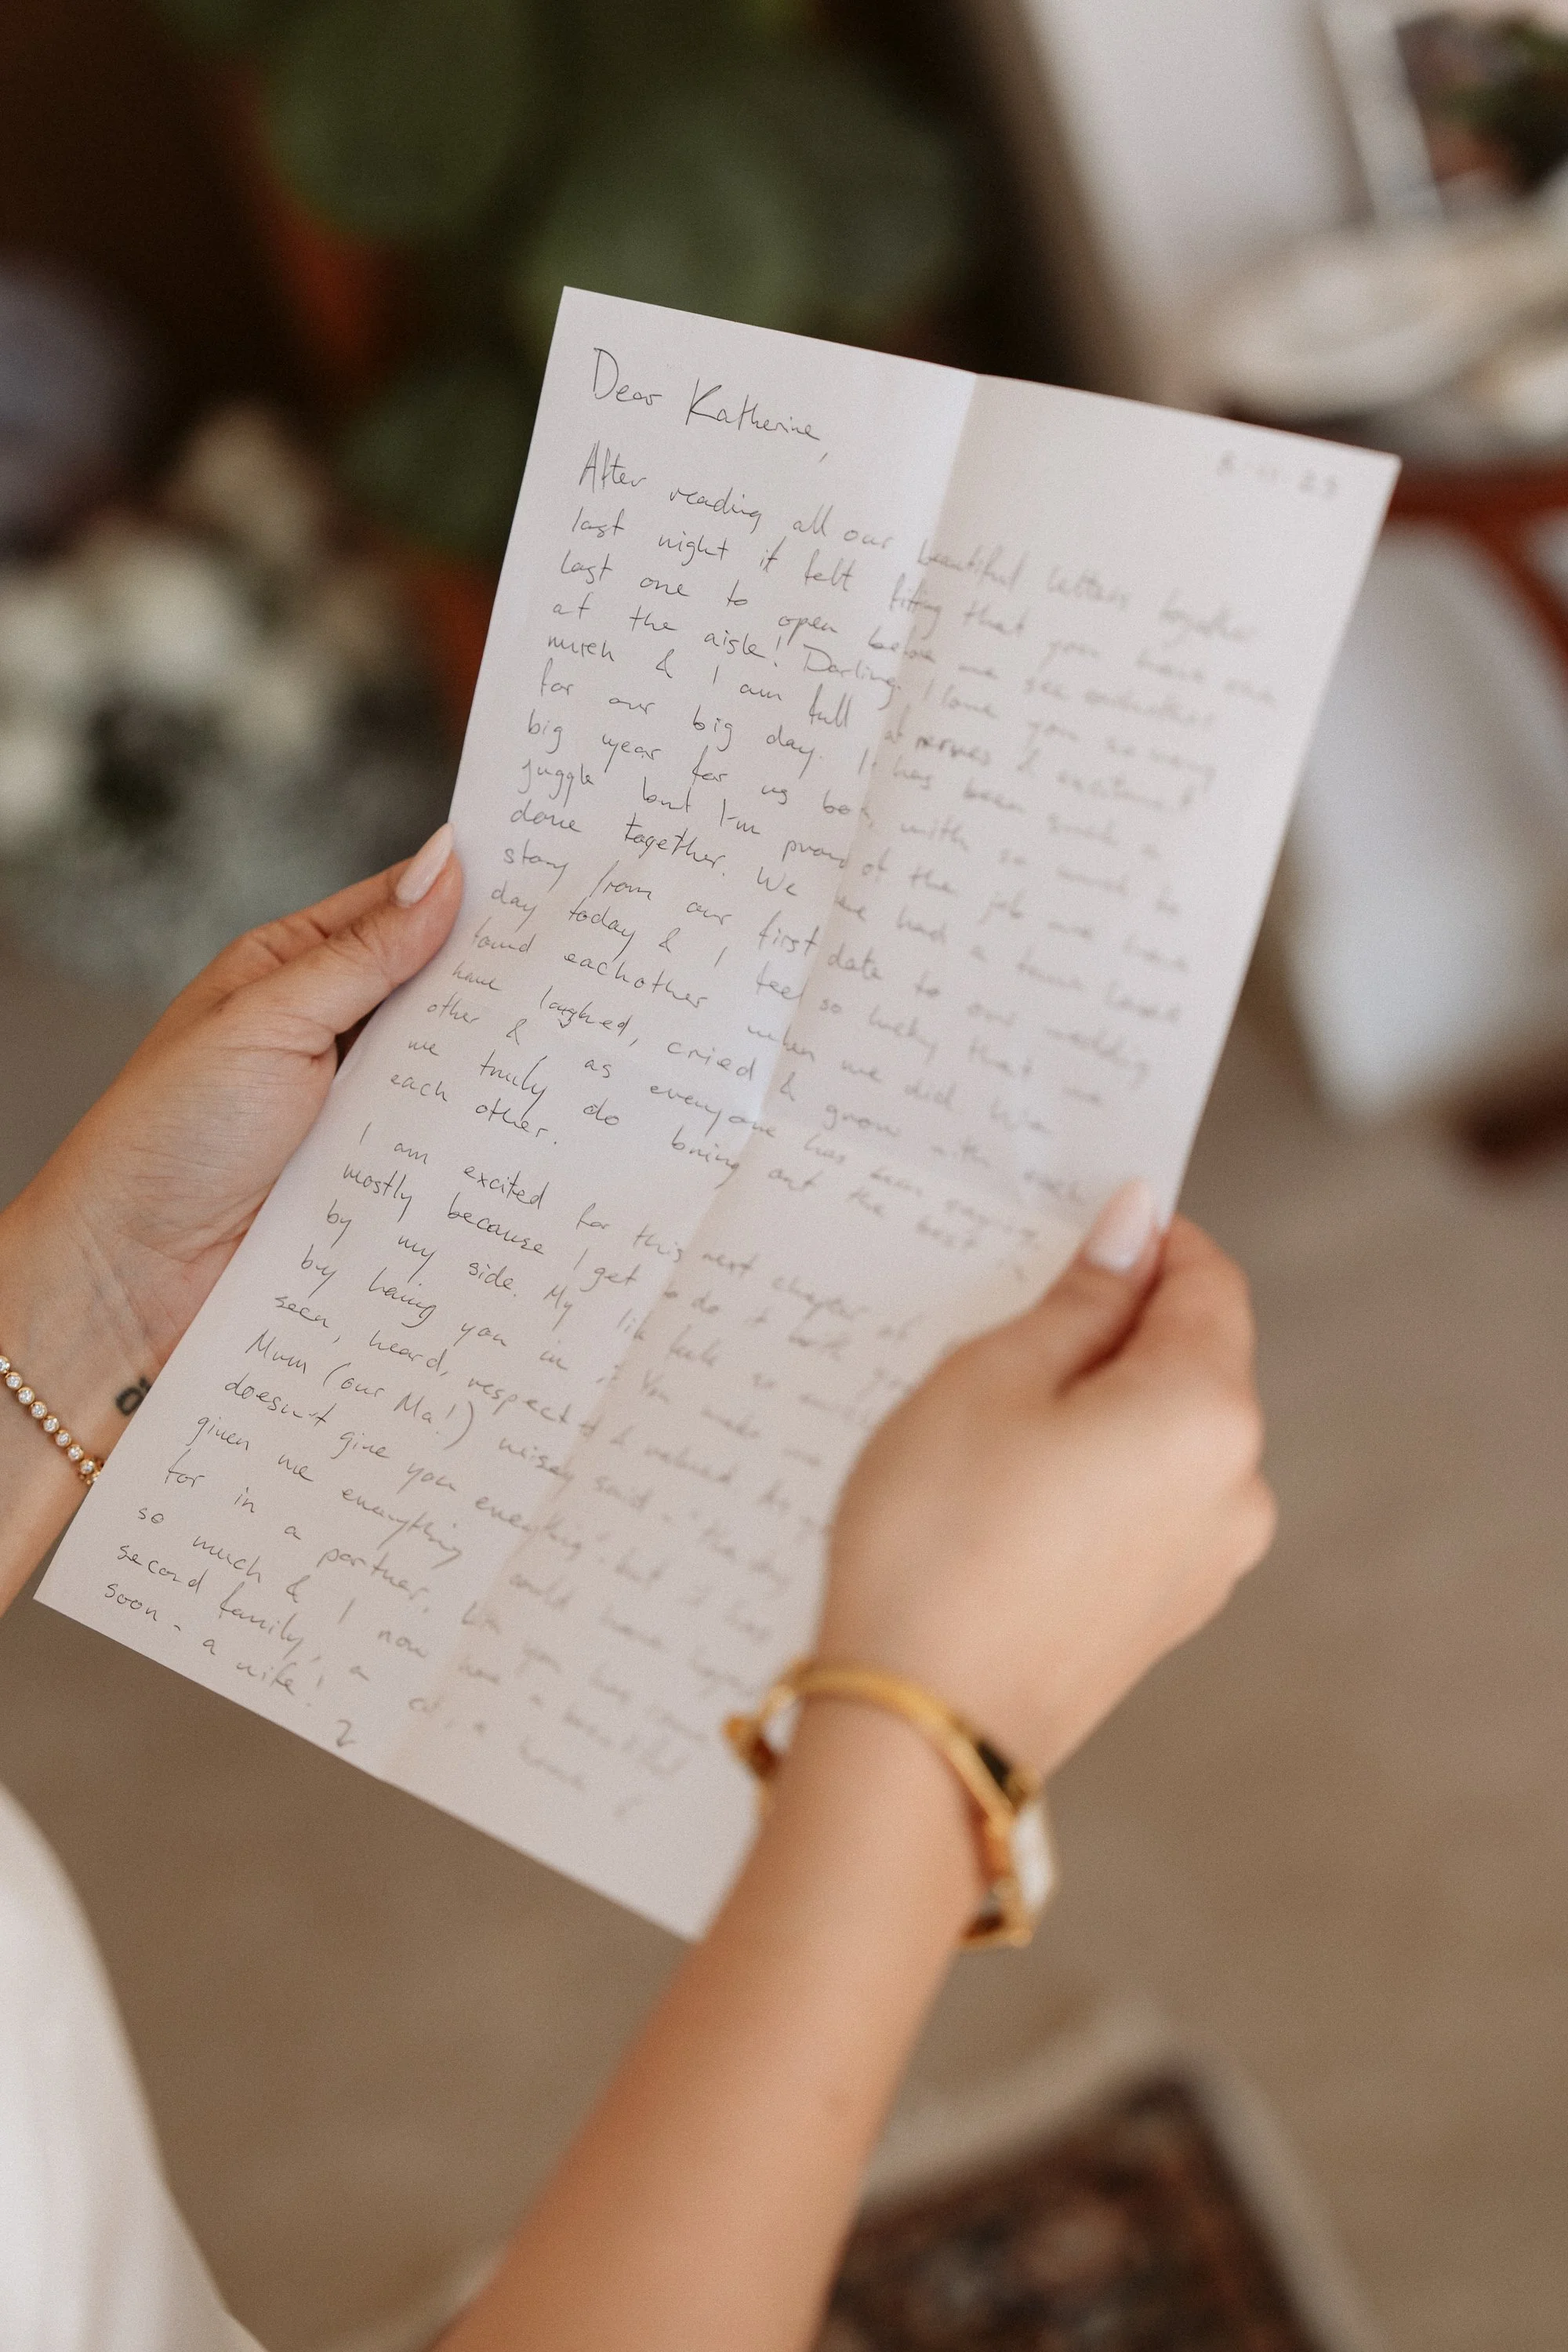 Dear Katherine,
After reading all our beautiful letters together
last night it felt fitting that you have one
last one to open before we see eachother
at the aisle! Darling, I love you so very
much & I am full of nerves & excitement
for our big day. It has been such a
big year for us both, with so much to
juggle but I'm proud of the job we have
done together. We have had a love
story from our first date to our wedding
day today & I feel so lucky that we
found eachother when we did. We
have laughed, cried & grown with each
other & , as everyone has been saying,
we truly do bring out the best in
each other.
I am excited for this next chapter of
mostly because I get to do it with you
by my side. My life feels so
by having you in it. You make me
seen, heard, respected & valued. As
Mum (our Ma!) wisely said - "
doesn't give you everything", but
given me everything I could have
for in a partner.
so much & I now have a beautiful
second family, a home &
soon - a wife!
2